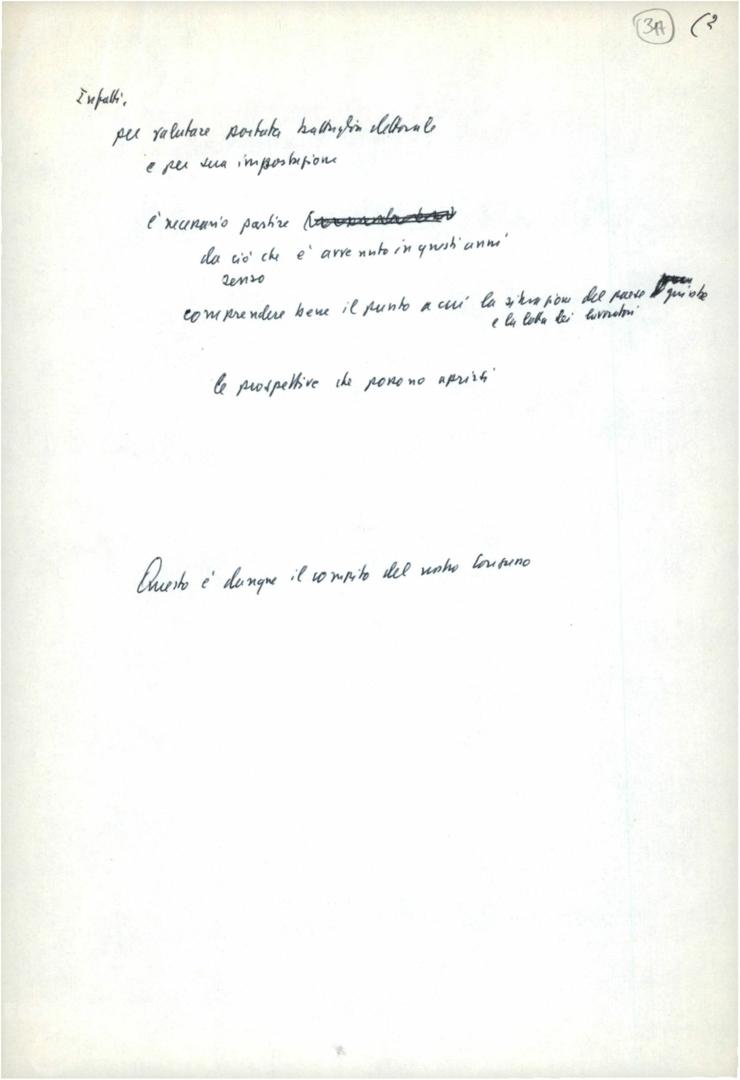 3A (2
Infatti,
per valutare portata battaglia elettorale
e per sua impostazione
è necessario partire
da ciò che è avvenuto in questi anni
senso
comprendere bene il punto a cui la situazione del paese
e la lotta dei lavoratori
le prospettive che possono aprirsi
Questo è dunque il compito del nostro